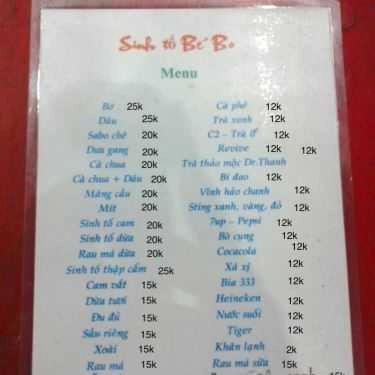 Sinh tố Bé Bo
Menu
Bơ 25k
Dâu 25k
Sabo chê 20k
Dưa gang 20k
Cà chua 20k
Cà chua + Dâu 20k
Mãng cầu 20k
Mít 20k
Sinh tố cam 20k
Sinh tố dừa 20k
Rau má dừa 20k
Sinh tố thập cẩm 25k
Cam vắt 15k
Dừa tươi 15k
Đu đủ 15k
Sầu riêng 15k
Xoài 15k
Rau má 15k
Cà phê 12k
Trà xanh 12k
C2 – Trà 12k
Revive 12k 12k
Trà thảo mộc Dr.Thanh
Bí đao 12k
Vĩnh hảo chanh 12k
Sting xanh, vàng, đỏ 12k
7up – Pepsi 12k
Bò cụng 12k
Cocacola 12k
Xá xị 12k
Bia 333 12k
Heineken 12k
Nước suối 12k
Tiger 12k
Khăn lạnh 2k
Rau má sữa 15k
15k